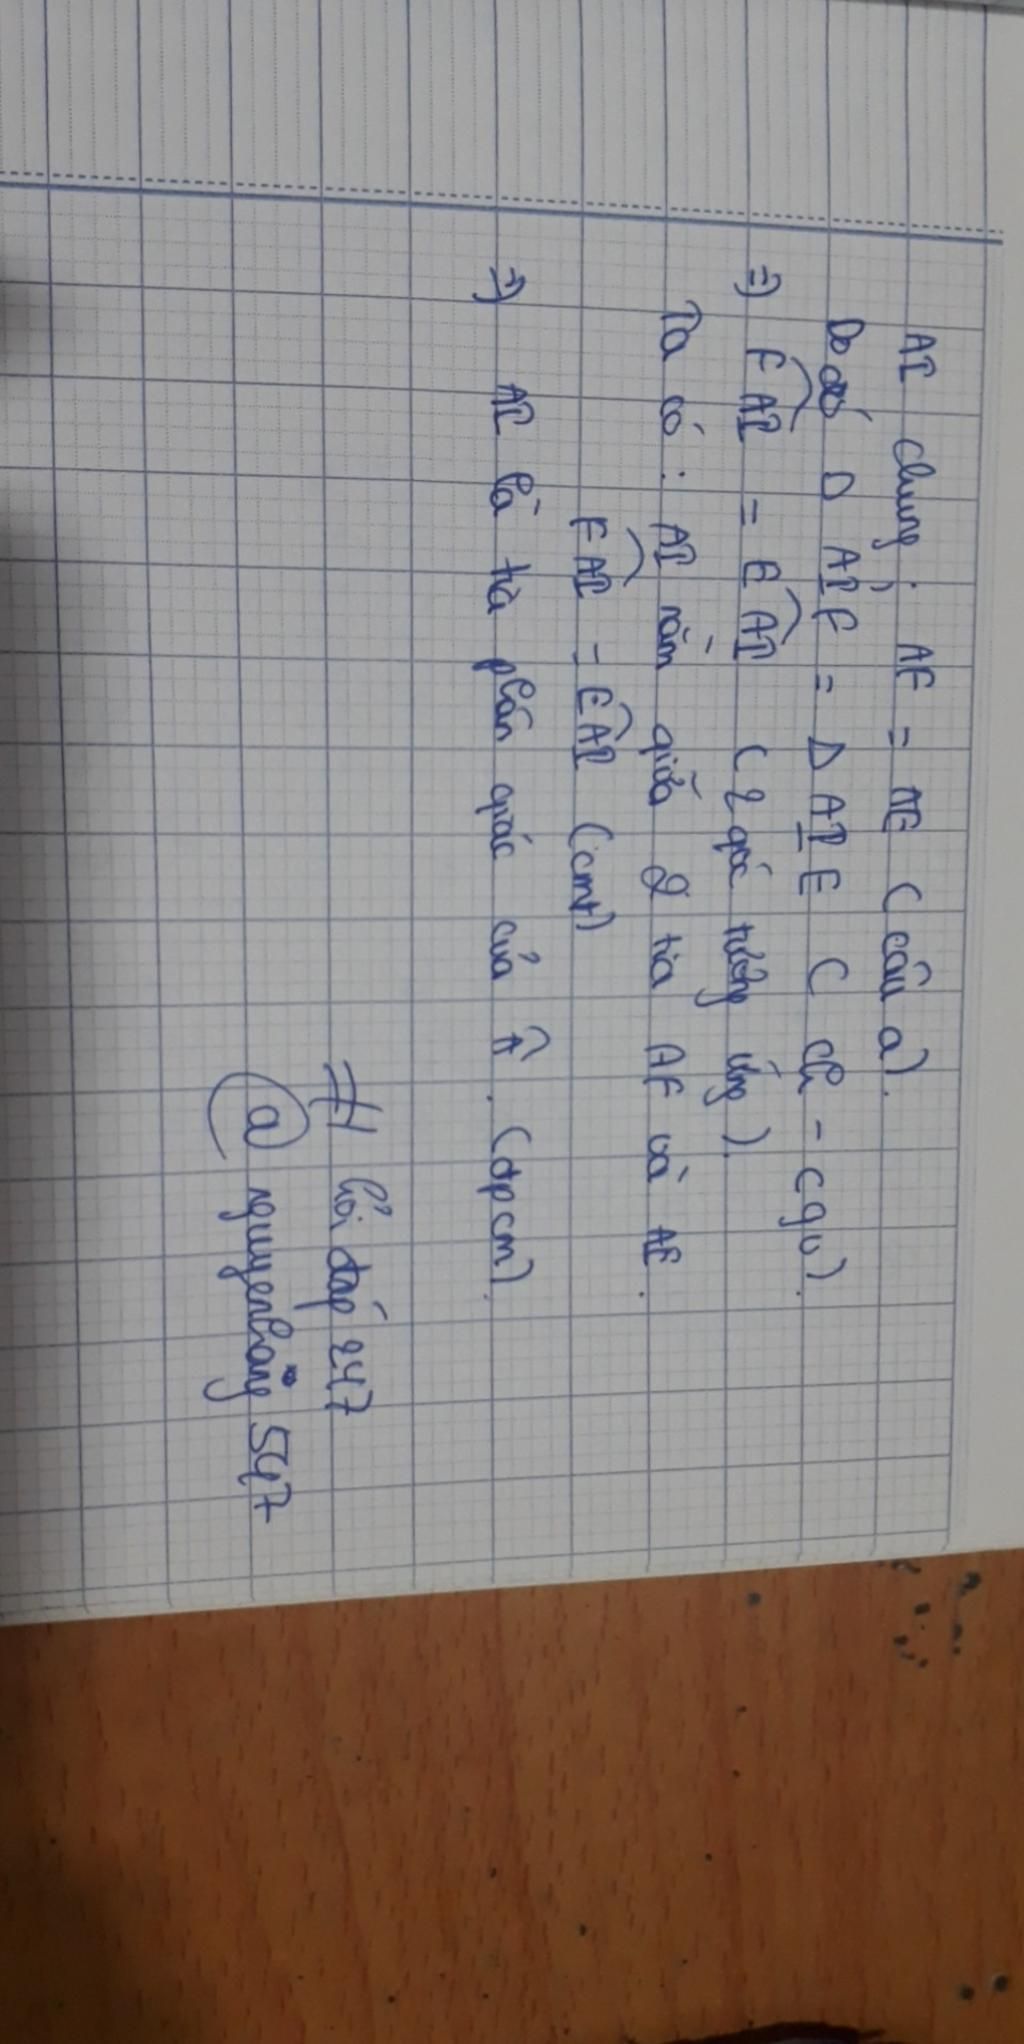 AI chung; AF = AE (câu a).
Do đó Δ AIF = Δ AIE ( ch - cgv).
=> FAI = EAI (2 góc tương ứng).
Ta có: AI nằm giữa 2 tia AF và AE.
FAI = EAI (cmt)
=> AI là tia phân giác của Â. (đpcm).
# hỏi đáp 247
@ nguyenhang 547